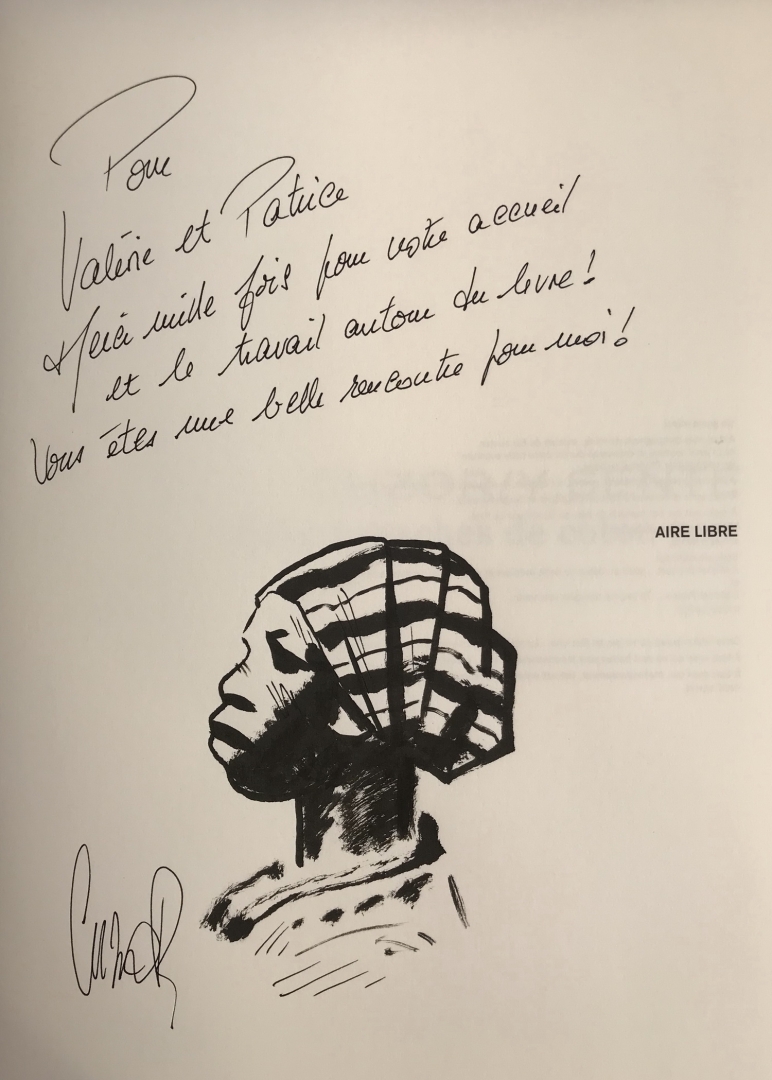 Pour
Valérie et Patrice
Merci mille fois pour votre accueil
et le travail autour du livre !
Vous êtes une belle rencontre pour moi !
AIRE LIBRE